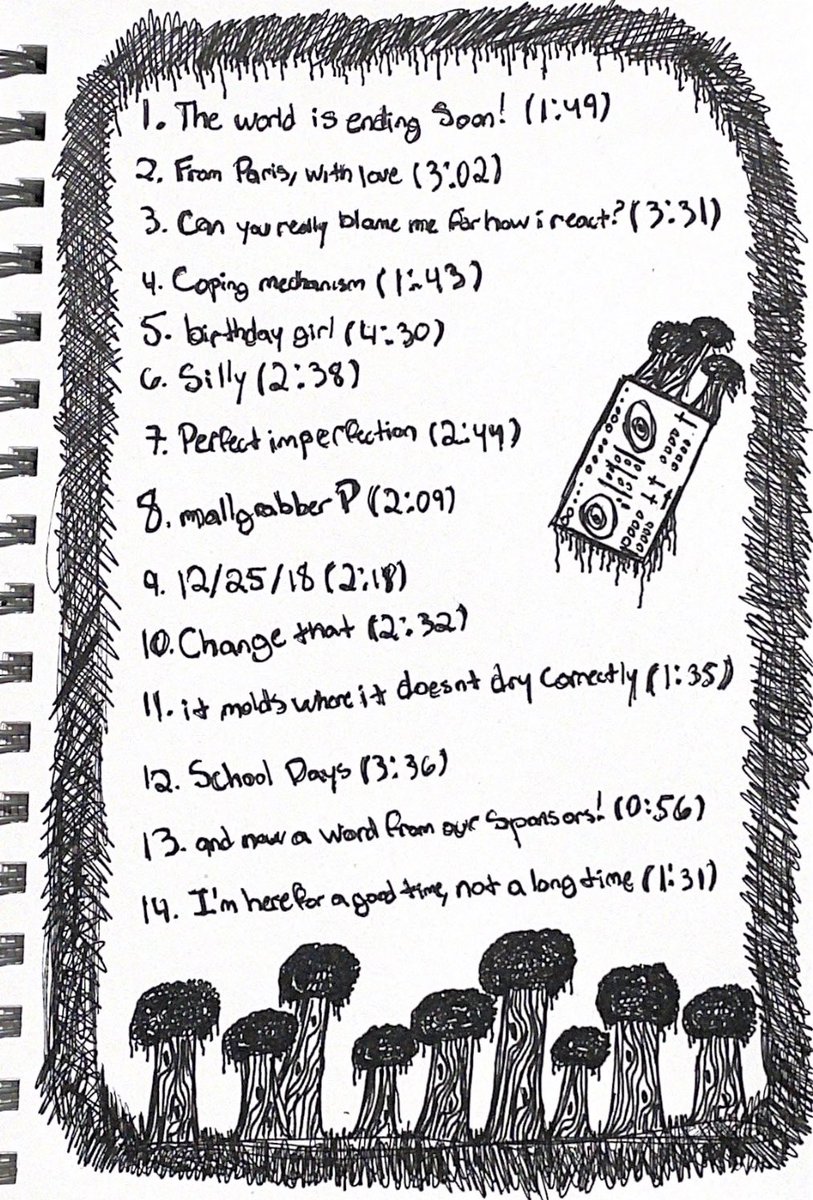 1. The world is ending Soon! (1:49)
2. From Paris, with love (3:02)
3. Can you really blame me for how i react? (3:31)
4. Coping mechanism (1:43)
5. birthday girl (4:30)
6. Silly (2:38)
7. Perfect imperfection (2:44)
8. mallgrabber P (2:09)
9. 12/25/18 (2:18)
10. Change that (2:32)
11. it molds where it doesnt dry correctly (1:35)
12. School Days (3:36)
13. and now a word from our Sponsors! (0:56)
14. I'm here for a good time, not a long time (1:31)